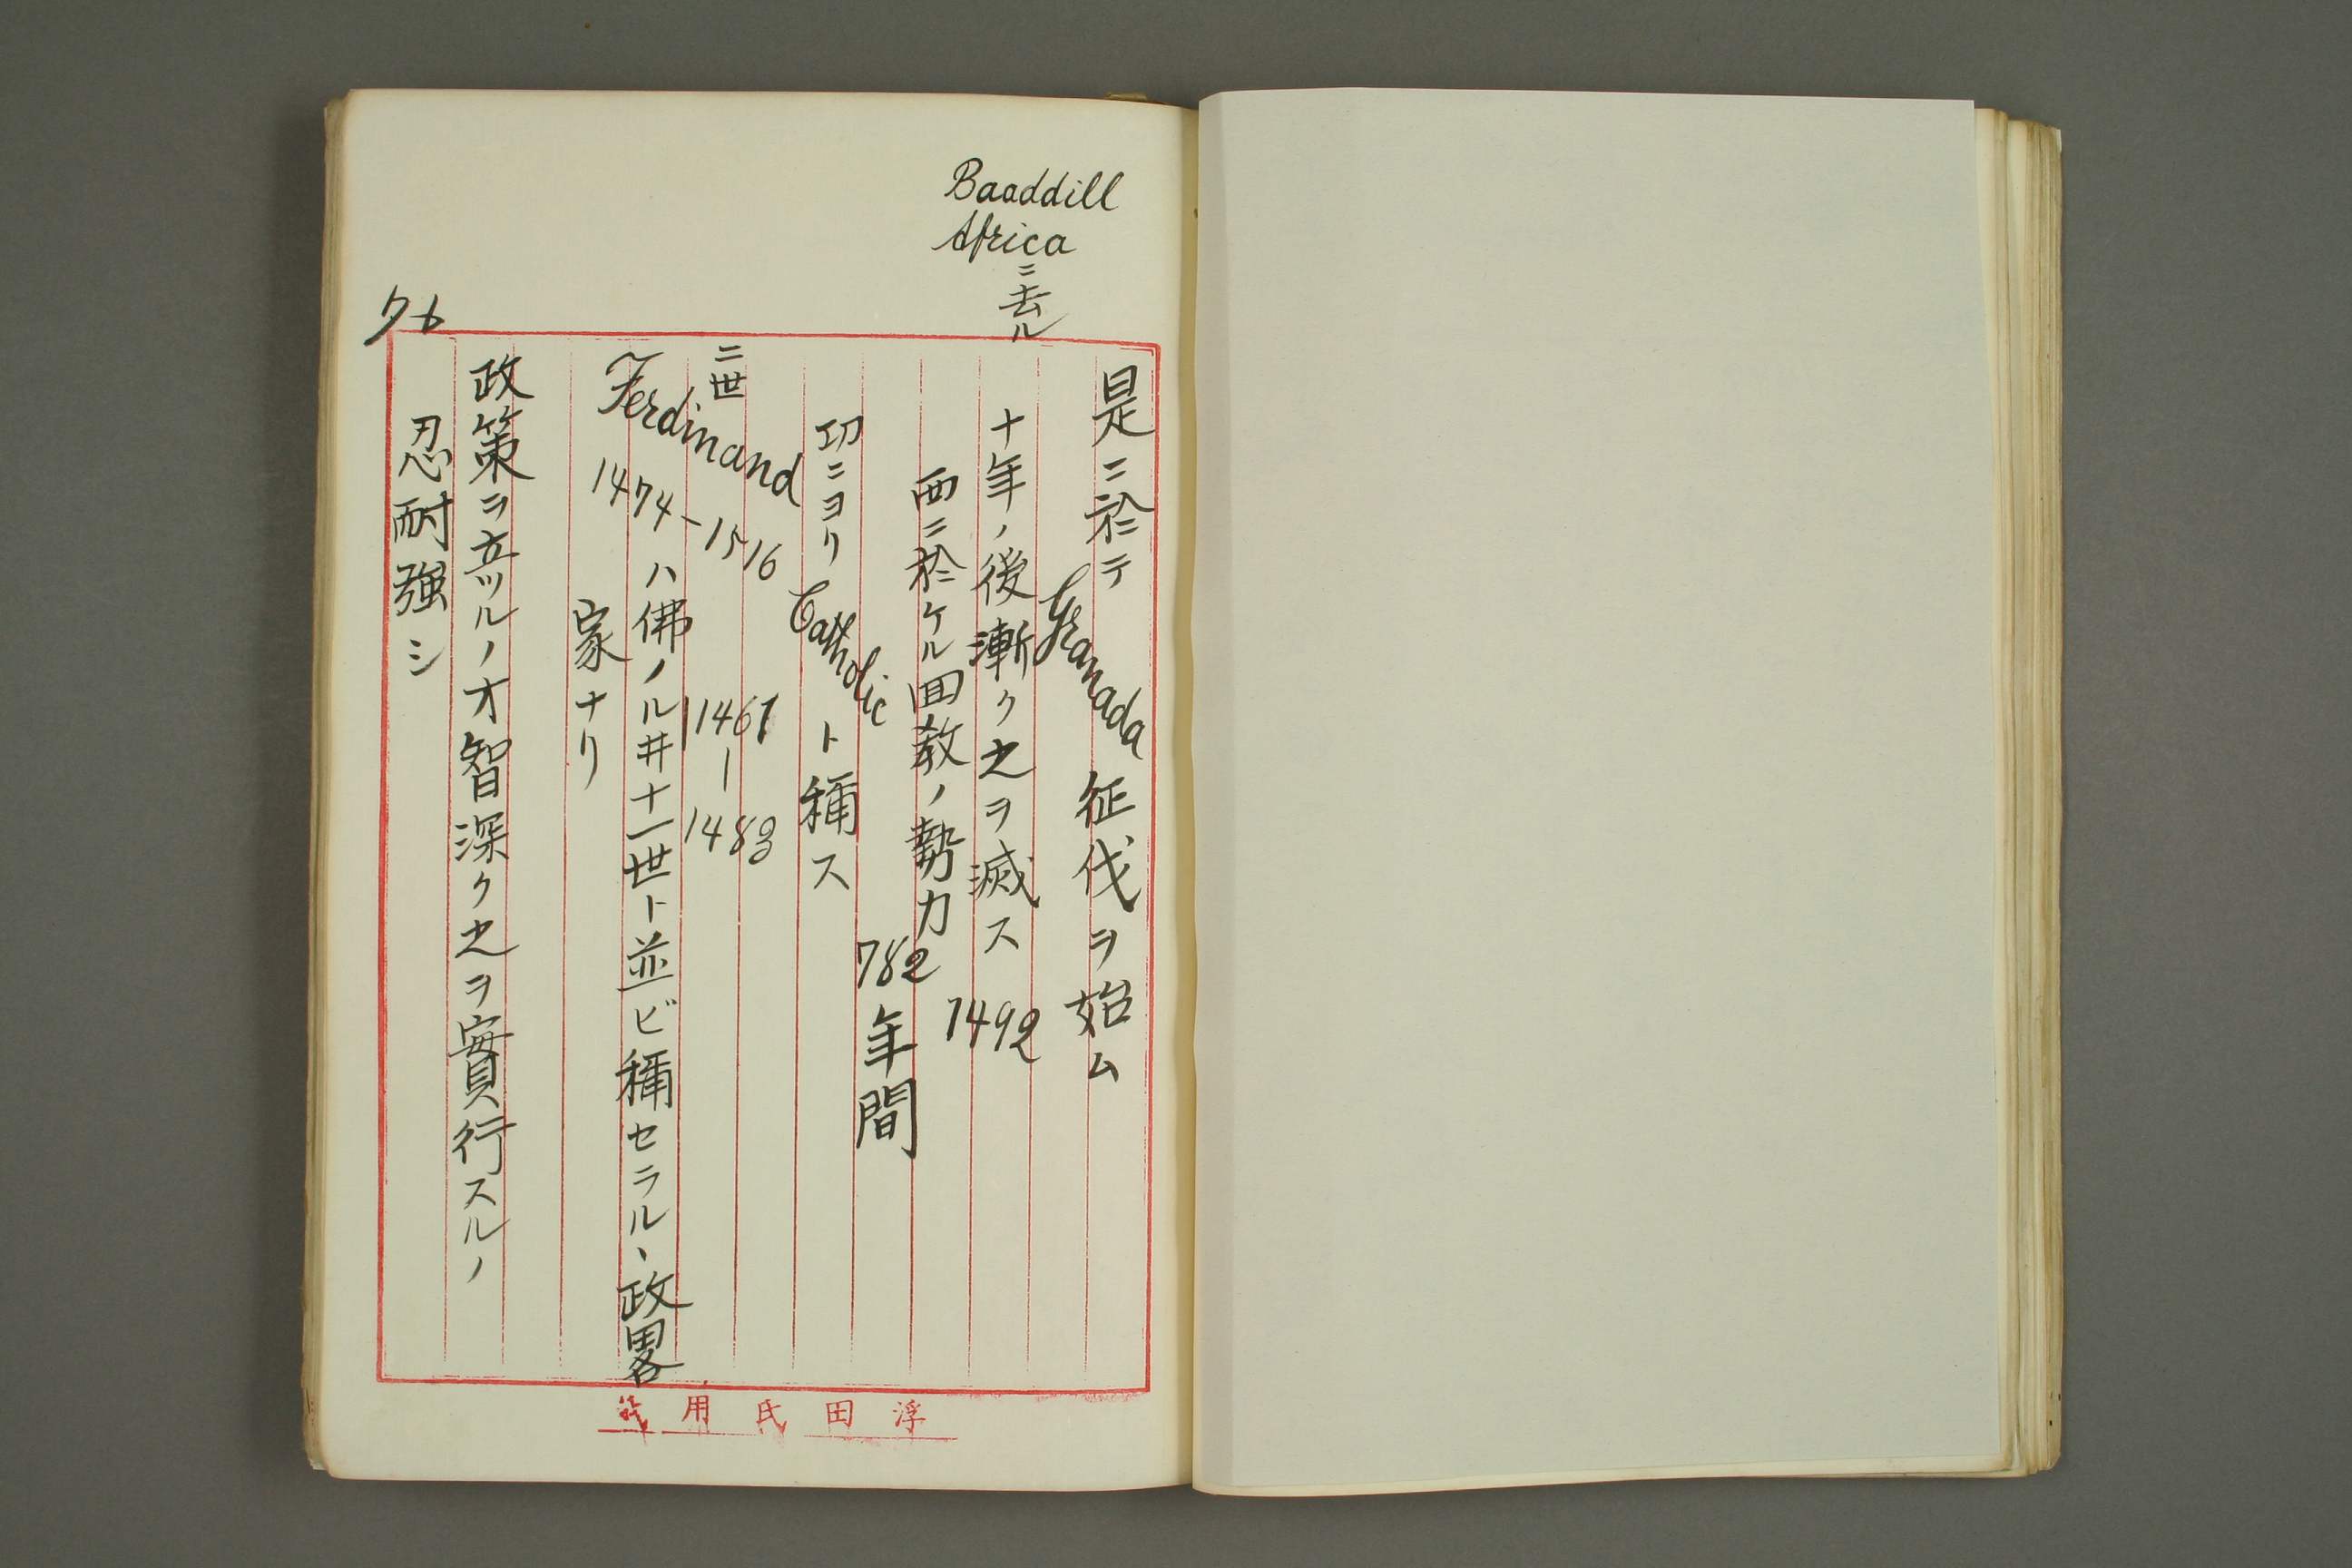 Baaddill
Africa
ニ去ル
是ニ於テ Granada 征伐ヲ始ム
十年ノ後漸ク之ヲ滅ス 1492
西ニ於ケル回教ノ勢力
782年間
功ニヨリ Catholic ト稱ス
二世
Ferdinand
1474-1516
1461-1483
ハ佛ノルヰ十一世ト並ビ稱セラルヽ政畧
家ナリ
政策ヲ立ツルノ才智深ク之ヲ實行スルノ
忍耐強シ
76
浮田氏用